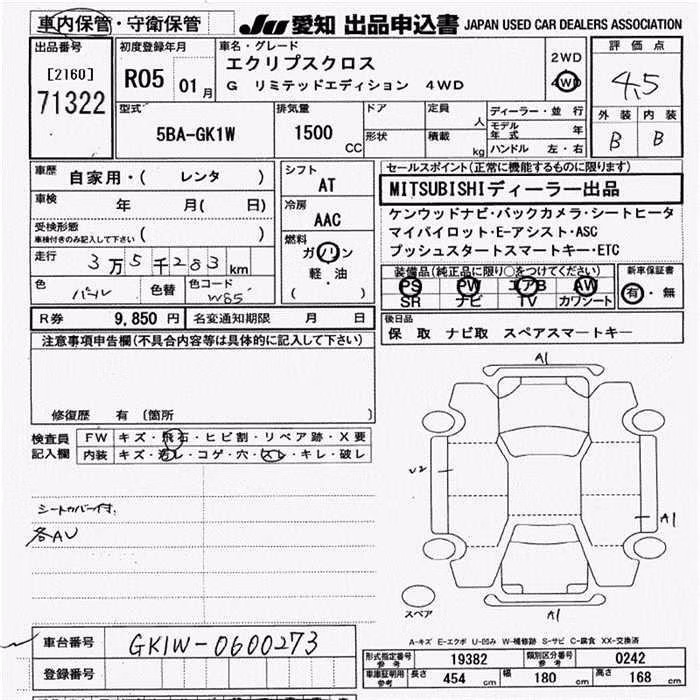 車内保管・守衛保管
JU 愛知 出品申込書 JAPAN USED CAR DEALERS ASSOCIATION
出品番号
[2160]
71322
初度登録年月
R05 01月
車名・グレード
エクリプスクロス
G リミテッドエディション 4WD
2WD
4WD
評価点
4.5
外装 内装
B B
型式
5BA-GK1W
排気量
1500 CC
ドア
形状
定員 人
積載 kg
ディーラー・並行
モデル年式 年
ハンドル 左・右
車歴 自家用・( レンタ )
車検 年 月( 日)
受検形態
車検付きのみ記入して下さい ( )
走行 3万5千283km
色 パール 色替
色コード W85
シフト
AT
冷房
AAC
燃料
ガソリン
軽・油
( )
セールスポイント(正常に機能するものに限ります)
MITSUBISHIディーラー出品
ケンウッドナビ・バックカメラ・シートヒータ
マイパイロット・E-アシスト・ASC
プッシュスタートスマートキー・ETC
装備品(純正品に限り○をつけてください)
PS PW エアB AW
SR ナビ TV カワシート
新車保証書
有・無
R券 9,850 円 名変通知期限 月 日
後日品
保 取 ナビ取 スペアスマートキー
注意事項申告欄(不具合内容等は具体的に記入して下さい)
修復歴 有 〔箇所 〕
検査員記入欄
FW キズ・飛石・ヒビ割・リペア跡・X要
内装 キズ・汚レ・コゲ・穴・スレ・キレ・破レ
シートカバー付.
各AU
A1
U2
A1
A1
スペア
A-キズ E-エクボ U-凹み W-補修跡 S-サビ C-腐食 XX-交換済
車台番号 GK1W-0600273
登録番号
形式指定番号参考 19382 類別区分番号参考 0242
車庫証明用参考 長さ 454 cm 幅 180 cm 高さ 168 cm